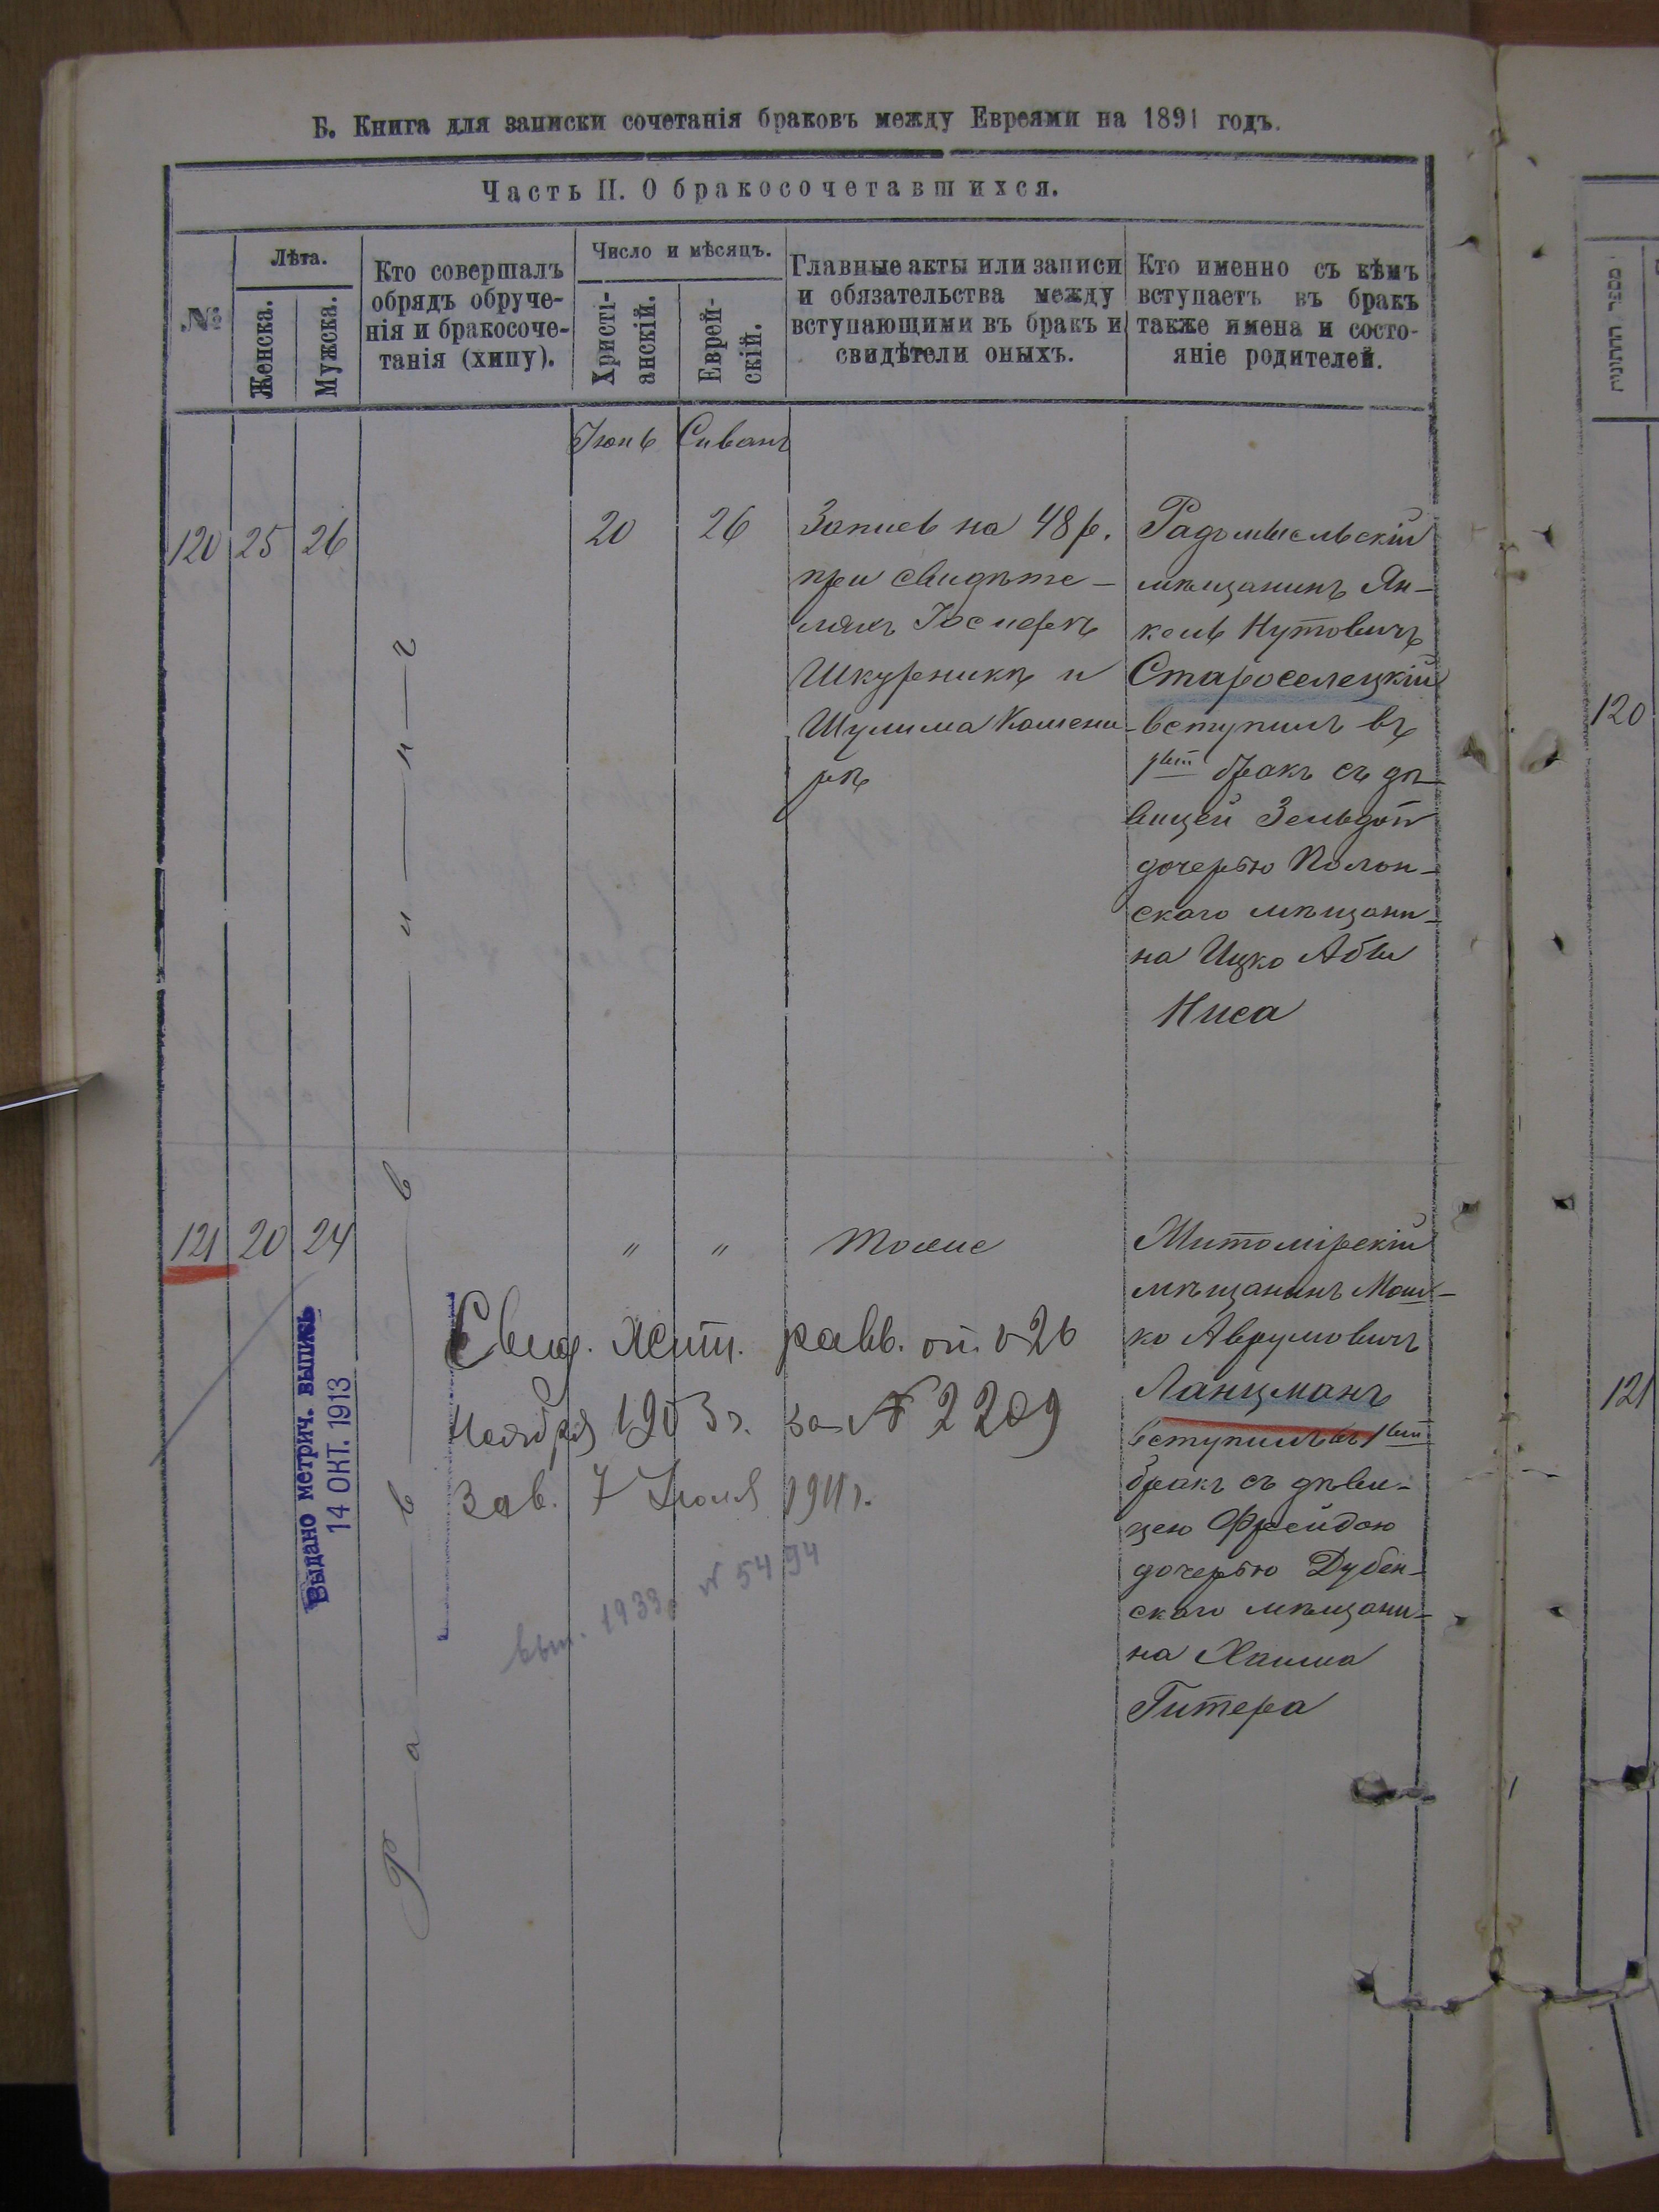 Б. Книга для записки сочетанія браковъ между Евреями на 1891 годъ.
Часть II. О бракосочетавшихся.
№
Лѣта.
Женска.
Мужска.
Кто совершалъ
обрядъ обруче-
нія и бракосоче-
танія (хипу).
Число и мѣсяцъ.
Христі-
анскій.
Еврей-
скій.
Главные акты или записи
и обязательства между
вступающими въ бракъ и
свидѣтели оныхъ.
Кто именно съ кѣмъ
вступаетъ въ бракъ
также имена и состо-
яніе родителей.
Іюнь Сиванъ
120 25 26
Раввинъ
20 26
Запись на 48 р.
при свидѣте-
ляхъ Іосифѣ
Шкурникѣ и
Шулима Камени-
рѣ
Радомысльскій
мѣщанинъ Ян-
кель Нутовичъ
Староселецкій
вступилъ въ
1вый бракъ съ дѣ-
вицей Зельдой
дочерью Полон-
скаго мѣщани-
на Ицко Абы
Ниса
121 20 24
" " тоже
Житомірскій
мѣщанинъ Мош-
ко Аврумовичъ
Ланцманъ
вступилъ въ 1вый
бракъ съ дѣви-
цею Фрейдою
дочерью Дубен-
скаго мѣщани-
на Хаима
Гитера
Свид. Жит. равв. от 26
Ноября 1903 г. за № 2209
Зав. 7 Июля 1911 г.
вып. 1933 № 5494
Выдано метрич. выпись
14 ОКТ. 1913
מספר החתונות
120
121